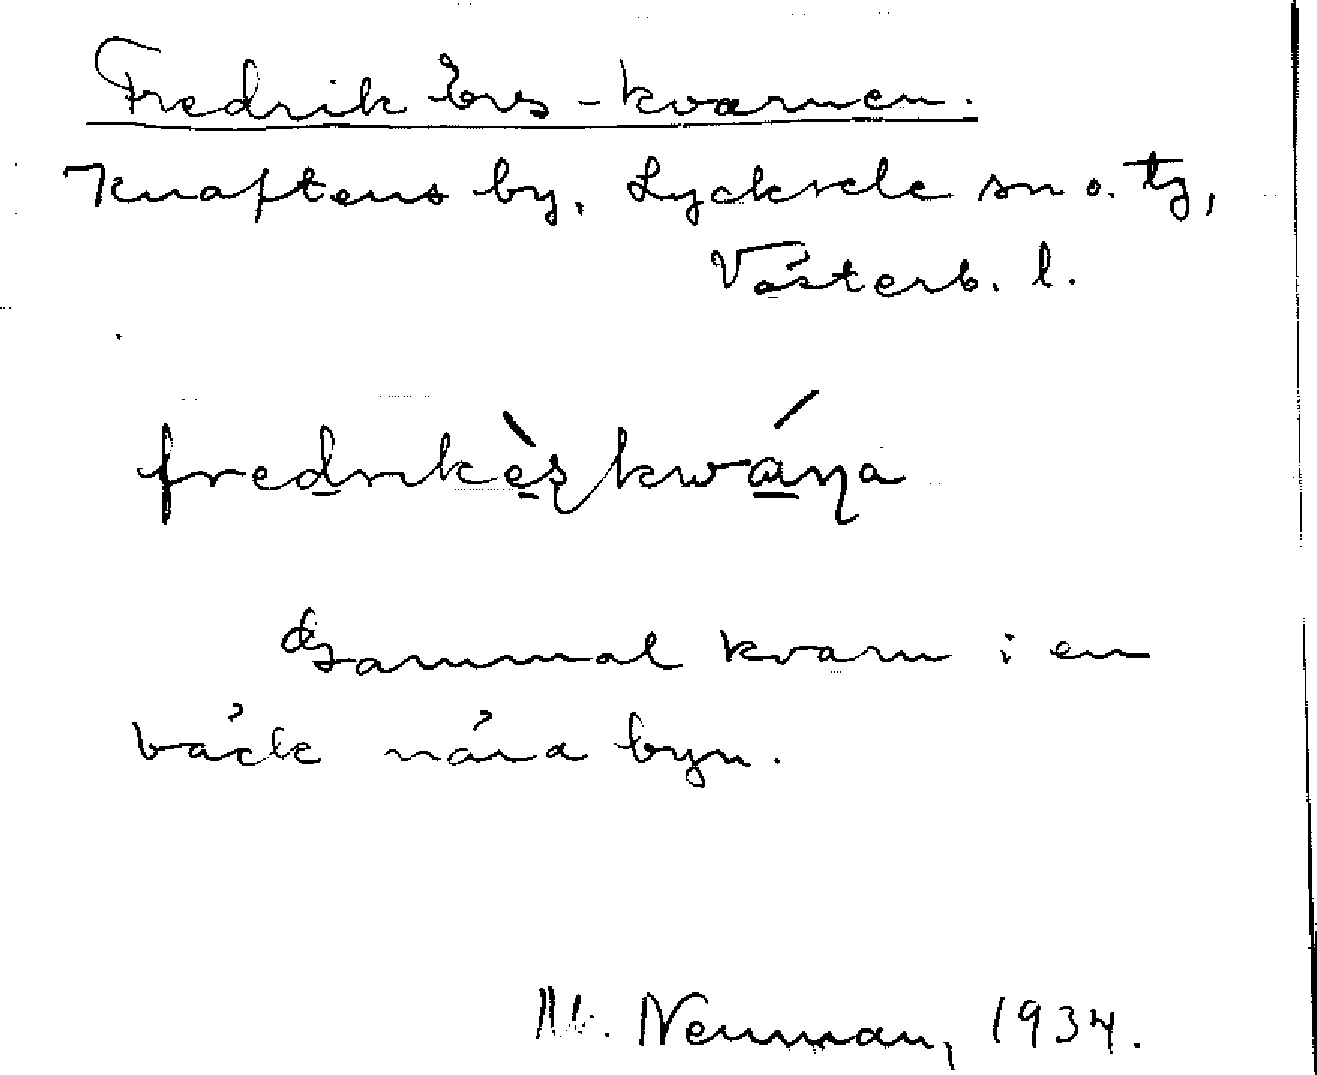 Fredrik Ers-kvarnen.
Knaftens by, Lycksele sn o. tg,
Västerb. l.
fredrikès kwáṇa
Gammal kvarn i en
bäck nära byn.
Neuman, 1934.